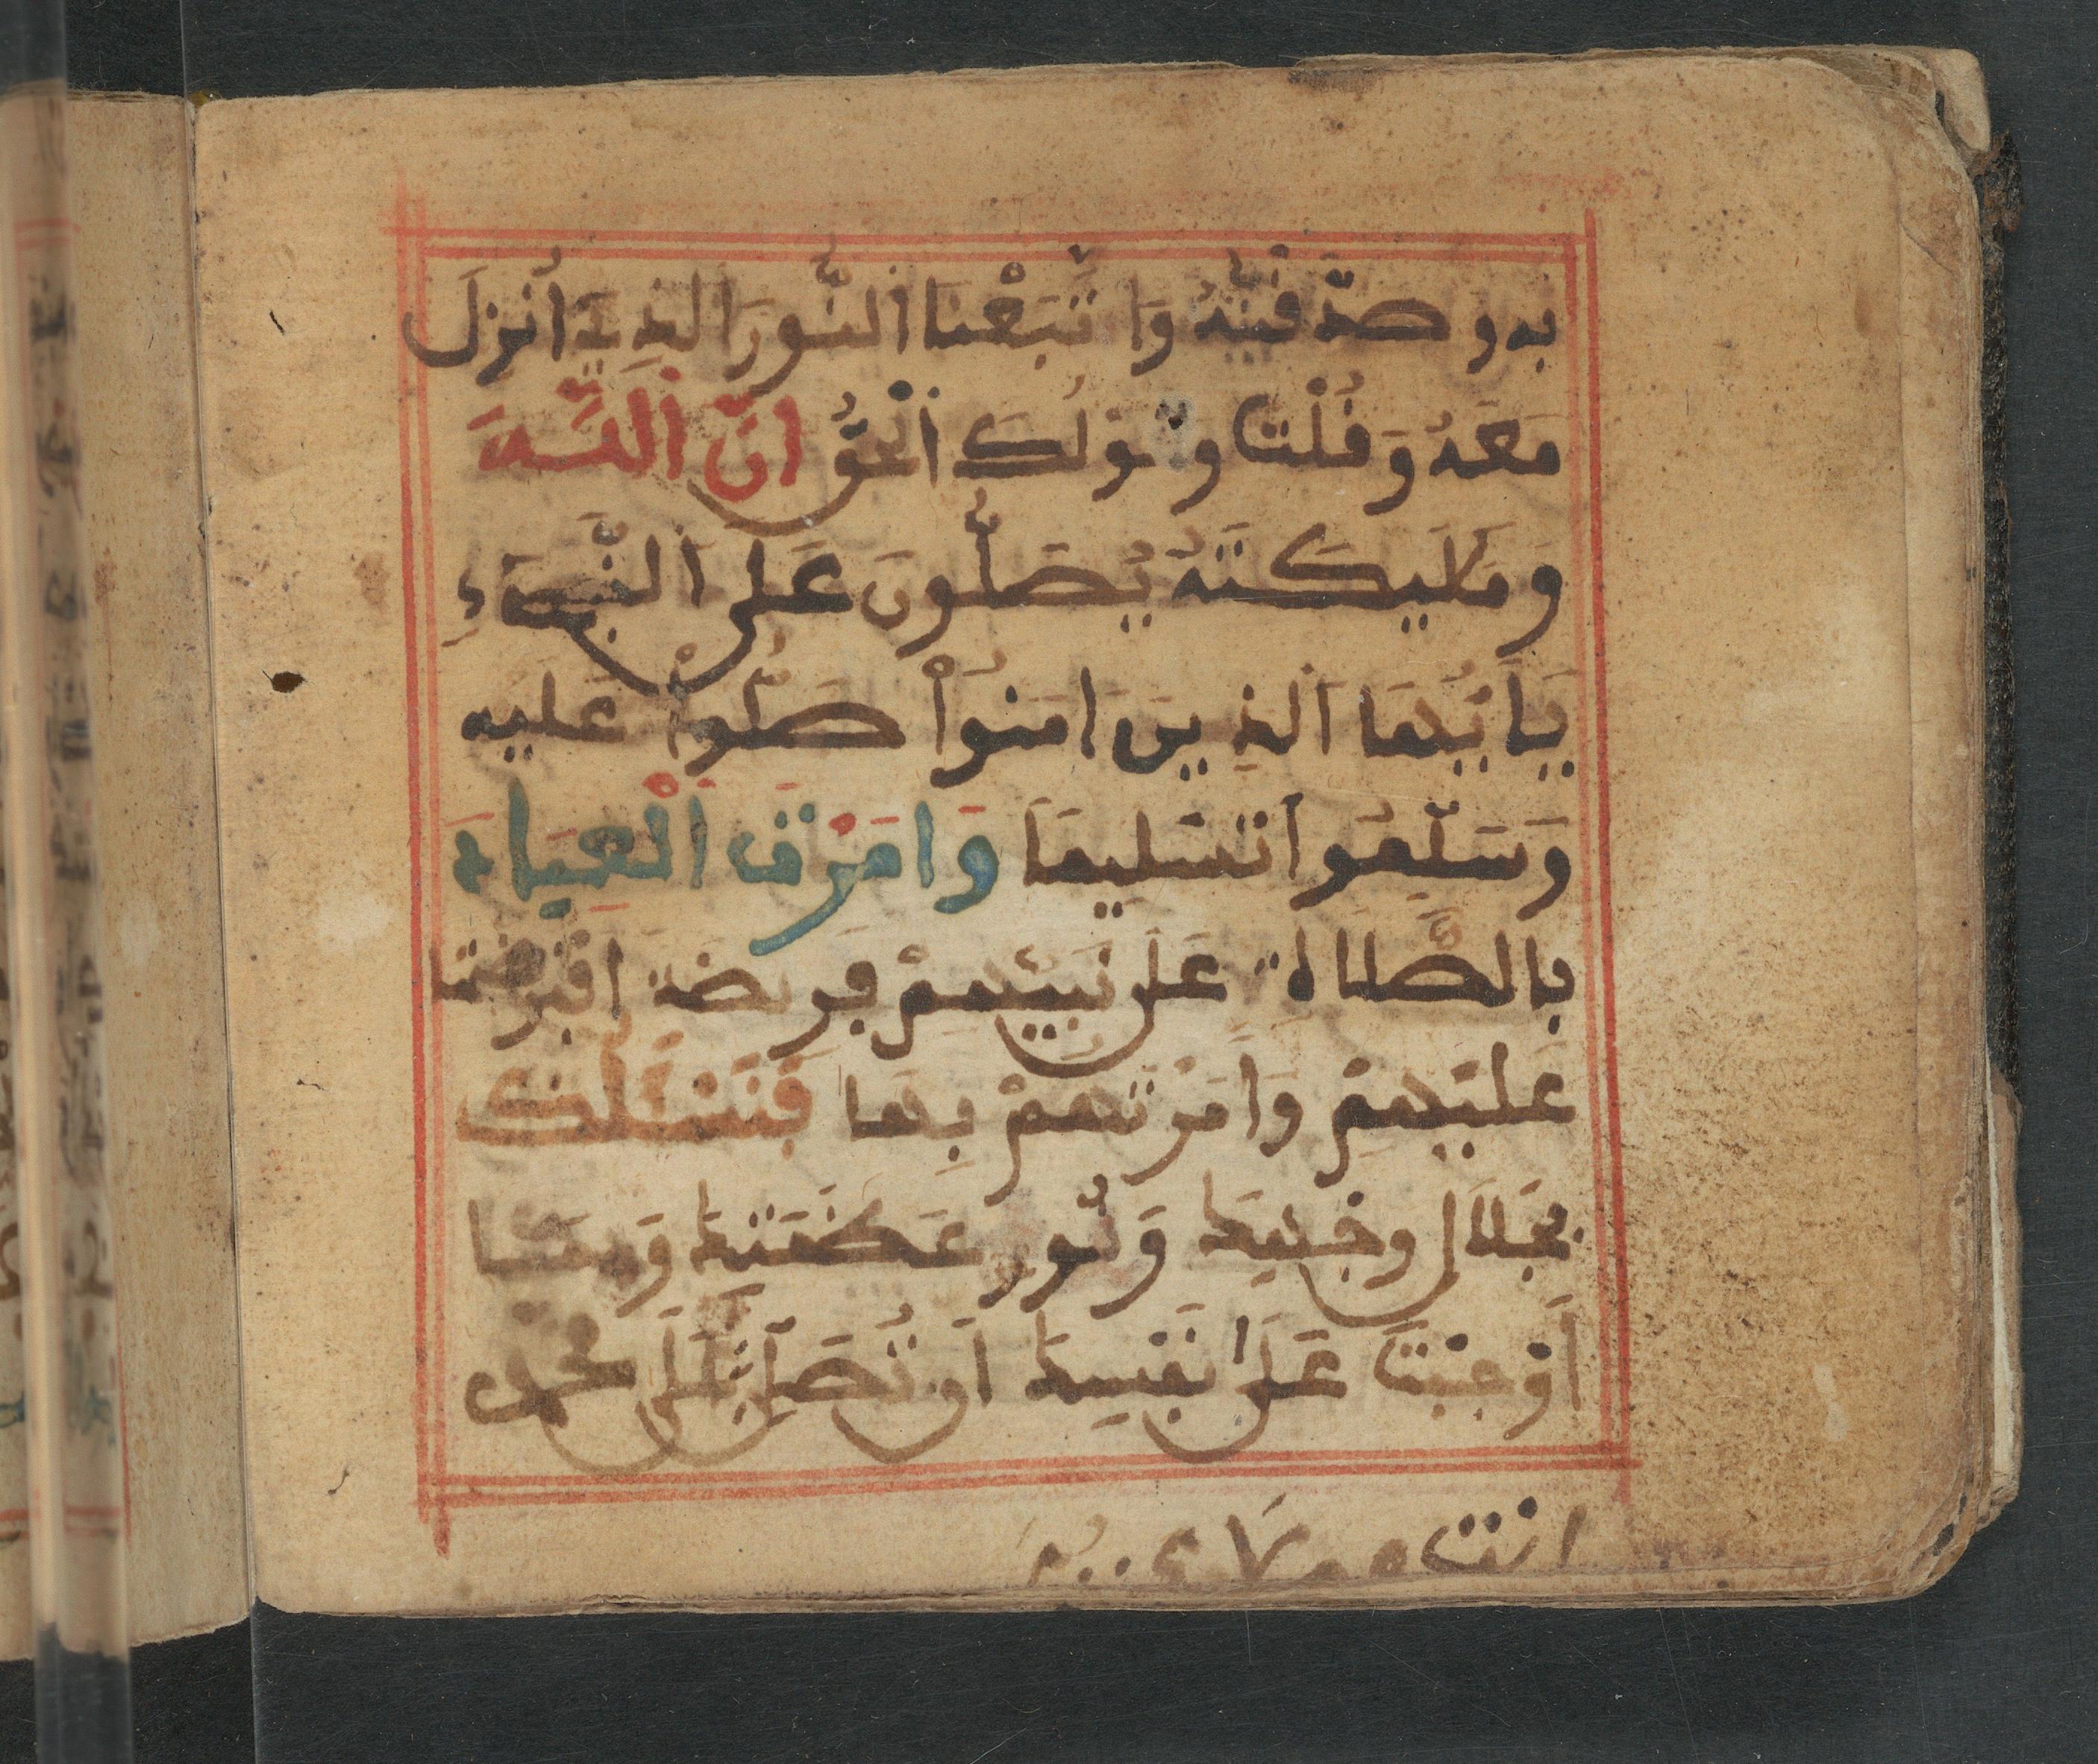 به وصدقته واتبعنا النور الذي أنزل
معه وقلت وقولك الحق ان الله
ومليكته يصلون على النبيء
يأيها الذين امنوا صلوا عليه
وسلموا تسليما وامرت العباد
بالصلاة على نبيهم فريضة افترضتها
عليهم وأمرتهم بها فنسئلك
بجلال وجهك ونور عظمتك وبما
أوجبت على نفسك ان تصلي على محمد
انت